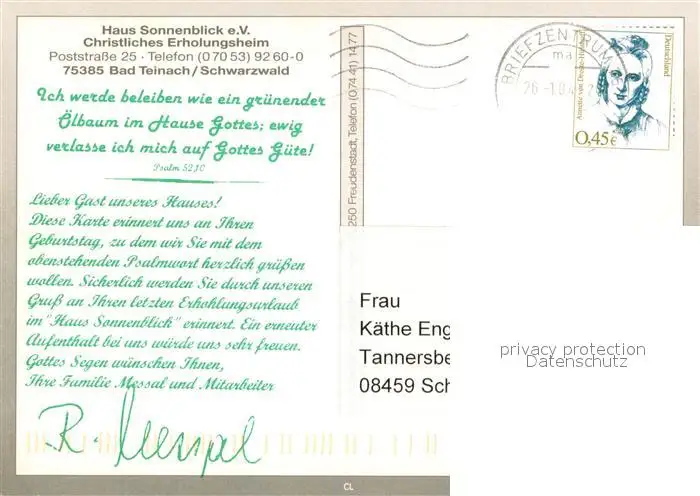 Haus Sonnenblick e.V.
Christliches Erholungsheim
Poststraße 25 · Telefon (0 70 53) 92 60-0
75385 Bad Teinach / Schwarzwald
Ich werde beleiben wie ein grünender
Ölbaum im Hause Gottes; ewig
verlasse ich mich auf Gottes Güte!
Psalm 52,10
Lieber Gast unseres Hauses!
Diese Karte erinnert uns an Ihren
Geburtstag, zu dem wir Sie mit dem
obenstehenden Psalmwort herzlich grüßen
wollen. Sicherlich werden Sie durch unseren
Gruß an Ihren letzten Erhohlungsurlaub
im "Haus Sonnenblick" erinnert. Ein erneuter
Aufenthalt bei uns würde uns sehr freuen.
Gottes Segen wünschen Ihnen,
Ihre Familie Messal und Mitarbeiter
R. Messal
250 Freudenstadt, Telefon (0 74 41) 14 77
BRIEFZENTRUM
Annette von Droste-Hülshoff
Deutschland
0,45€
Frau
Käthe Eng
Tannersbe
08459 Sch
privacy protection
Datenschutz
CL